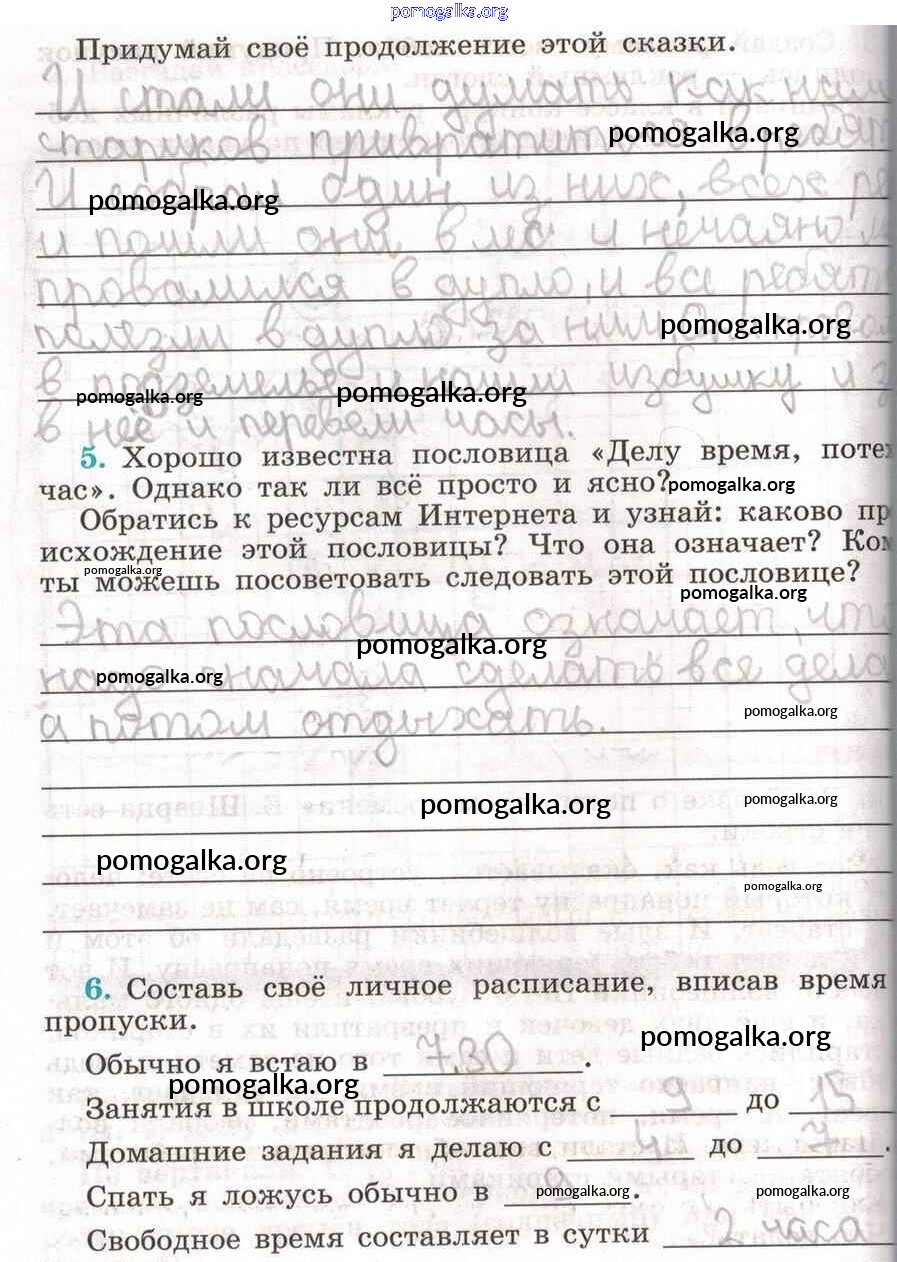 pomogalka.org
Придумай своё продолжение этой сказки.
И стали они думать как нам
стариков привратиться в ребят
pomogalka.org
И собрал один из них, всех ре
pomogalka.org
и пошли они в лес и нечаяно
провалился в дупло, и все ребята
полезли в дупло за ним
pomogalka.org
в подземелье и нашли избушку и з
pomogalka.org pomogalka.org
в неё и перевели часы.
5. Хорошо известна пословица «Делу время, потех
час». Однако так ли всё просто и ясно?
pomogalka.org
Обратись к ресурсам Интернета и узнай: каково пр
исхождение этой пословицы? Что она означает? Ком
pomogalka.org
ты можешь посоветовать следовать этой пословице?
pomogalka.org
Эта пословица означает, что
pomogalka.org
надо сначала сделать все дела
pomogalka.org
а потом отдыхать.
pomogalka.org
pomogalka.org pomogalka.org
pomogalka.org
pomogalka.org
6. Составь своё личное расписание, вписав время
пропуски.
pomogalka.org
Обычно я встаю в 7.30.
pomogalka.org
Занятия в школе продолжаются с 9 до 15
Домашние задания я делаю с 4 до 7.
Спать я ложусь обычно в 9.
pomogalka.org pomogalka.org
Свободное время составляет в сутки 2 часа